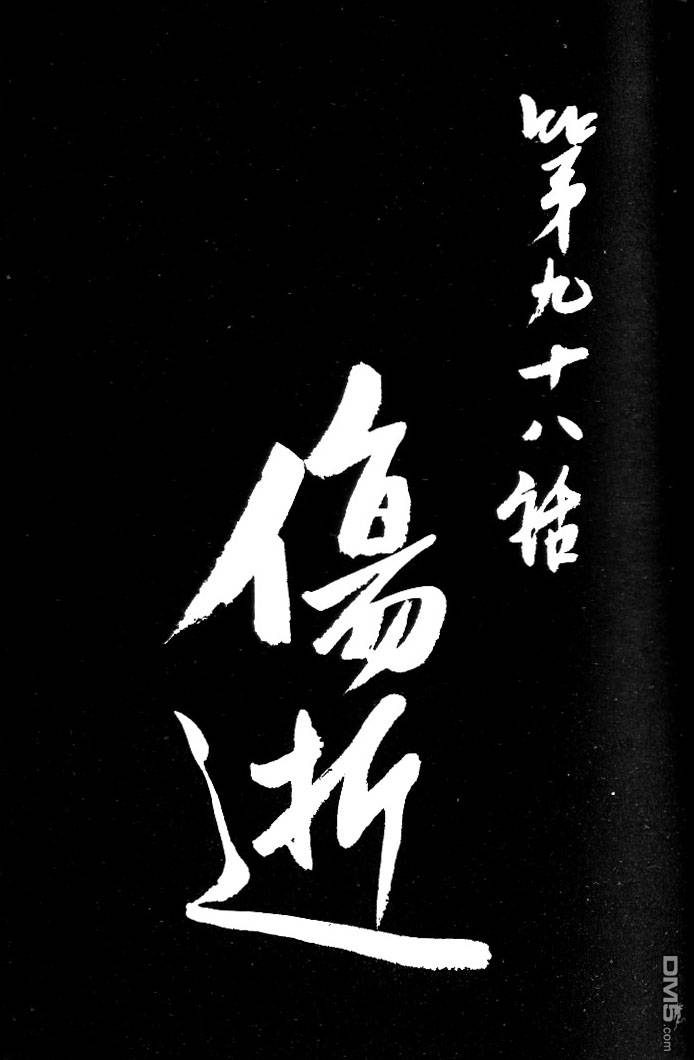 第九十八話
傷逝
DM5.com